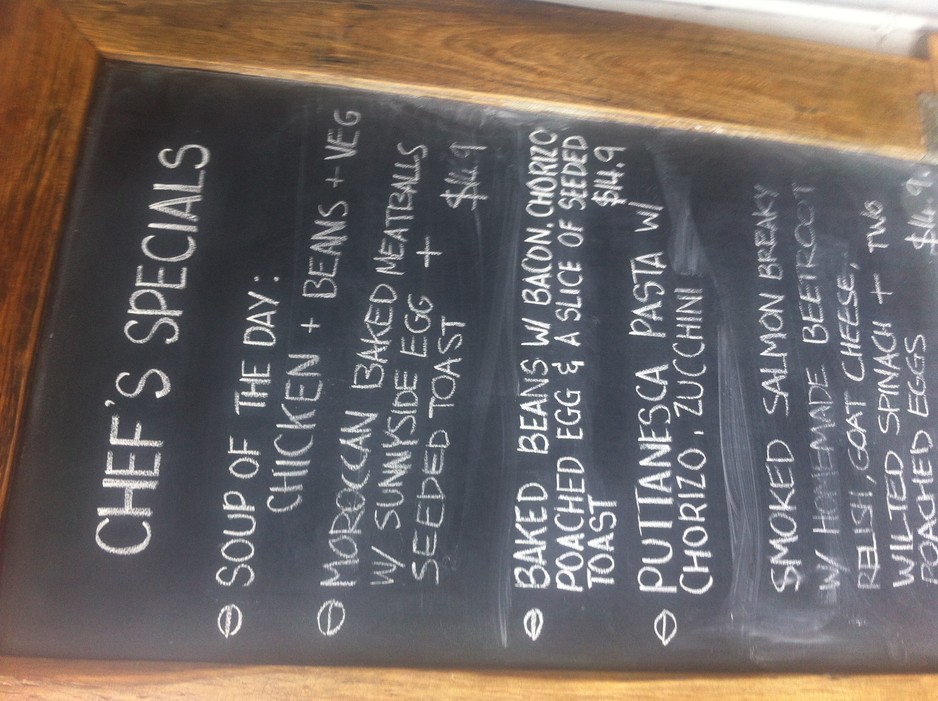 CHEF'S SPECIALS
SOUP OF THE DAY:
CHICKEN + BEANS + VEG
MOROCCAN BAKED MEATBALLS
W/ SUNNYSIDE EGG +
SEEDED TOAST $14.9
BAKED BEANS W/ BACON, CHORIZO
POACHED EGG & A SLICE OF SEEDED
TOAST $14.9
PUTTANESCA PASTA W/
CHORIZO, ZUCCHINI
SMOKED SALMON BREAKY
W/ HOMEMADE BEETROOT
RELISH, GOAT CHEESE,
WILTED SPINACH + TWO
POACHED EGGS $14.9